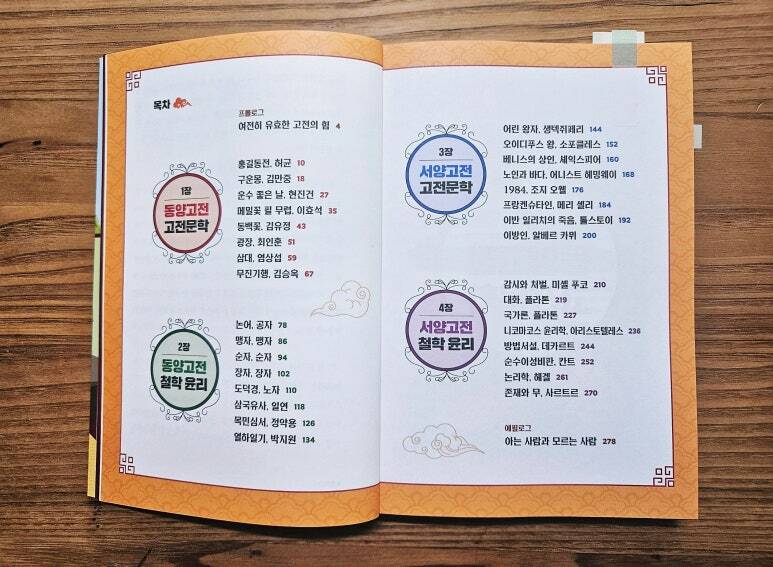 목차
프롤로그
여전히 유효한 고전의 힘 4
1장
동양고전
고전문학
홍길동전, 허균 10
구운몽, 김만중 18
운수 좋은 날, 현진건 27
메밀꽃 필 무렵, 이효석 35
동백꽃, 김유정 43
광장, 최인훈 51
삼대, 염상섭 59
무진기행, 김승옥 67
2장
동양고전
철학 윤리
논어, 공자 78
맹자, 맹자 86
순자, 순자 94
장자, 장자 102
도덕경, 노자 110
삼국유사, 일연 118
목민심서, 정약용 126
열하일기, 박지원 134
3장
서양고전
고전문학
어린 왕자, 생텍쥐페리 144
오이디푸스 왕, 소포클레스 152
베니스의 상인, 셰익스피어 160
노인과 바다, 어니스트 헤밍웨이 168
1984, 조지 오웰 176
프랑켄슈타인, 메리 셸리 184
이반 일리치의 죽음, 톨스토이 192
이방인, 알베르 카뮈 200
4장
서양고전
철학 윤리
감시와 처벌, 미셸 푸코 210
대화, 플라톤 219
국가론, 플라톤 227
니코마코스 윤리학, 아리스토텔레스 236
방법서설, 데카르트 244
순수이성비판, 칸트 252
논리학, 헤겔 261
존재와 무, 사르트르 270
에필로그
아는 사람과 모르는 사람 278